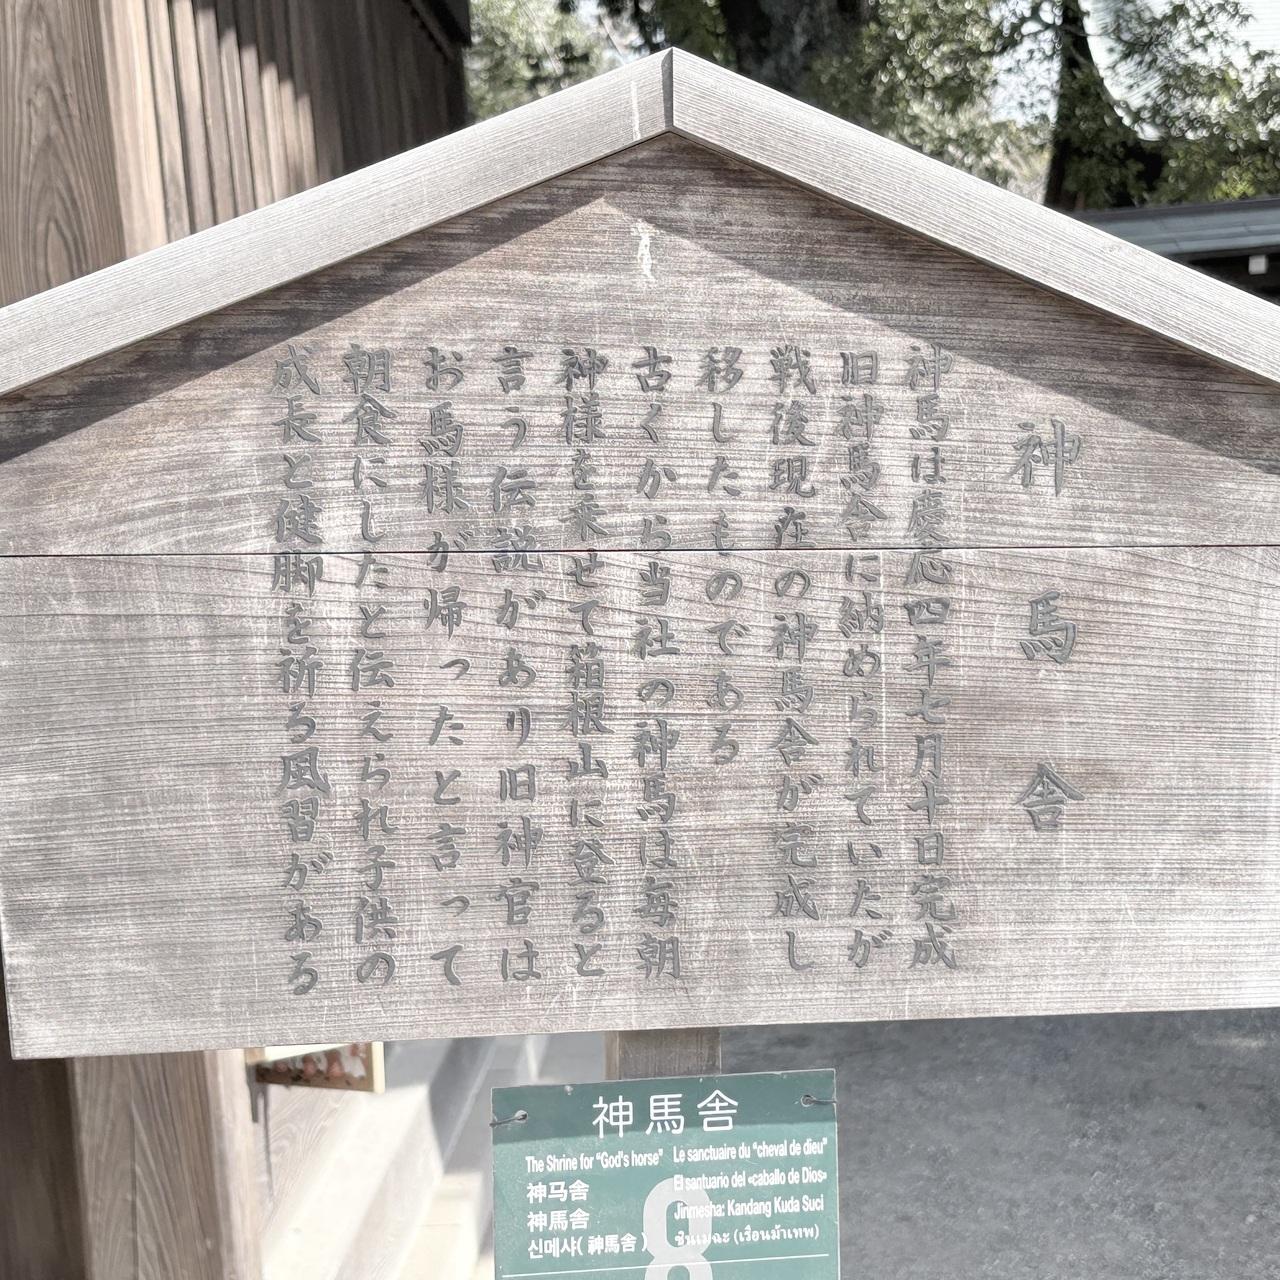 神馬舎
神馬は慶応四年七月十日完成
旧神馬舎に納められていたが
戦後現在の神馬舎が完成し
移したものである
古くから当社の神馬は毎朝
神様を乗せて箱根山に登ると
言う伝説があり旧神官は
お馬様が帰ったと言って
朝食にしたと伝えられ子供の
成長と健脚を祈る風習がある
神馬舎
The Shrine for "God's horse"
神马舎
神馬舎
신메샤( 神馬舎 )
Le sanctuaire du "cheval de dieu"
El santuario del «caballo de Dios»
Jinmesha: Kandang Kuda Suci
ชินเมฉะ (เรือนม้าเทพ)
8